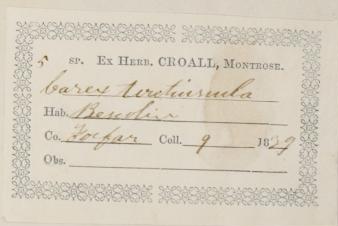 5 SP. EX HERB. CROALL, MONTROSE.
Carex
Hab.
Co. Forfar Coll. 9 1839
Obs.